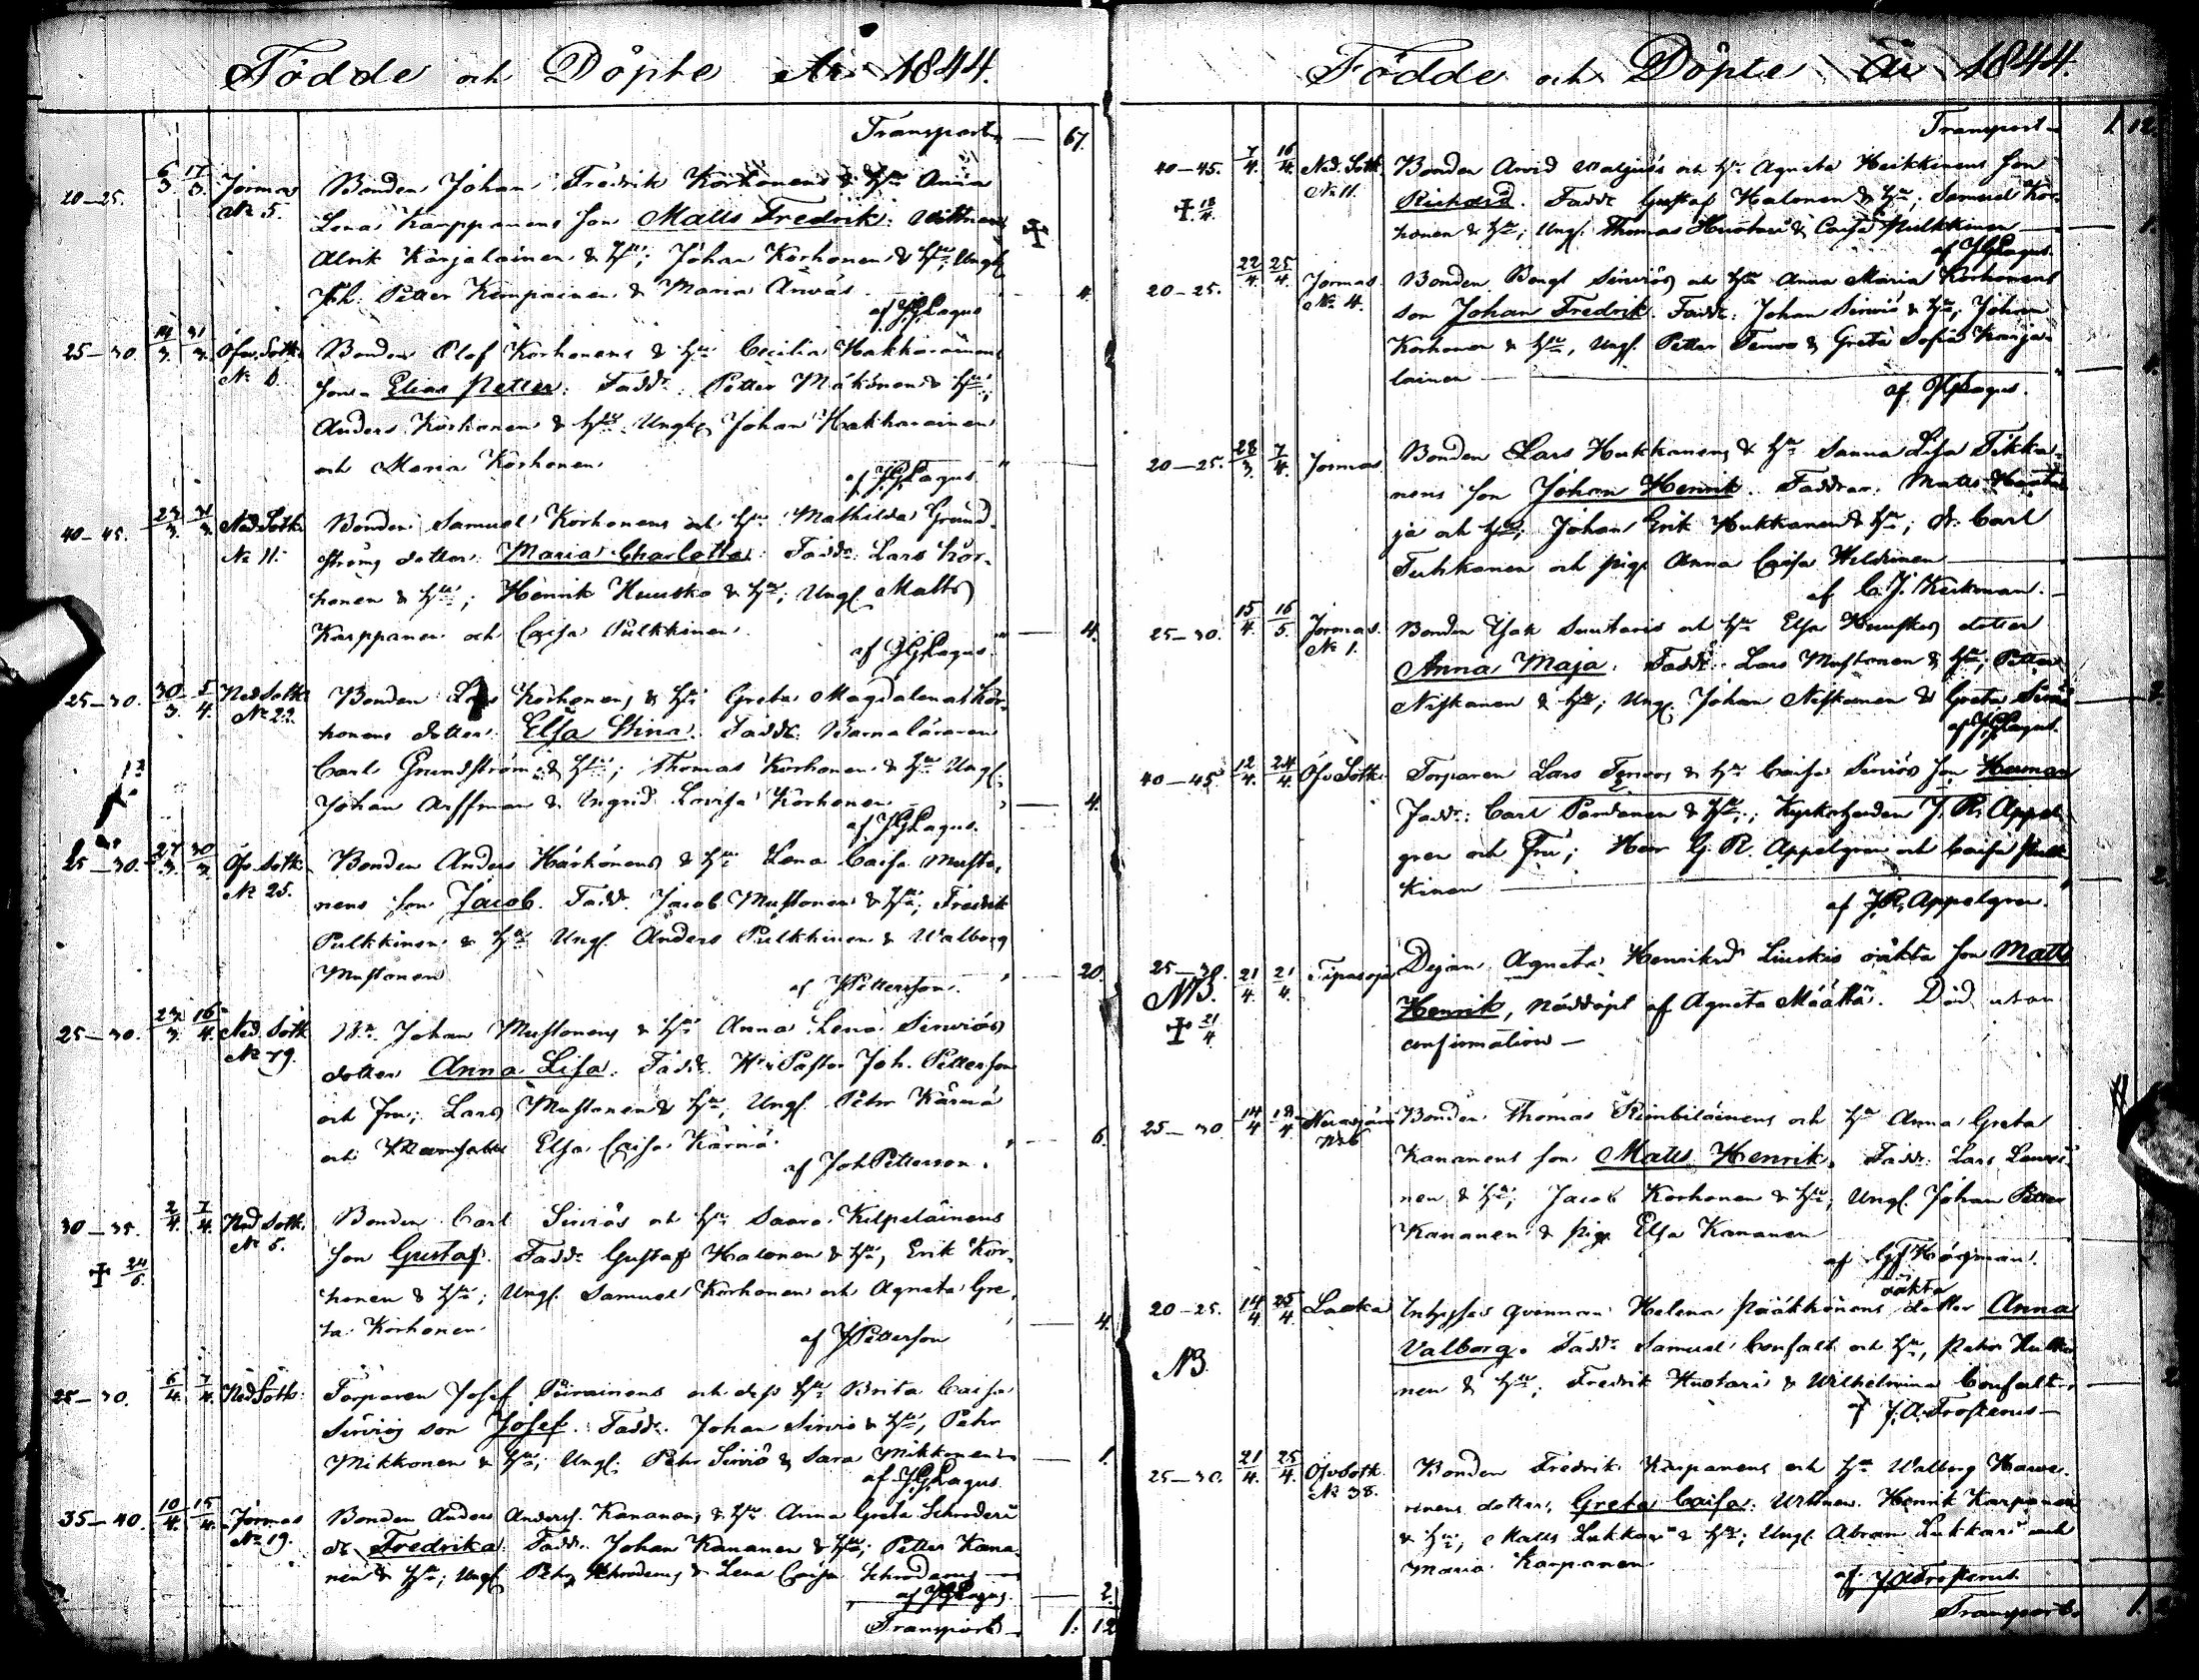 Födde och Döpte År 1844.
Transport 67.
20–25. 6/3 17/3 Jormas Bonden Johan Fredrik Korhonens & hu Anna
№ 5. Lena Karppanens son Matts Fredrik. Wittnen
Alrik Karjalainen & hu; Johan Korhonen & hu; Ungk
Joh: Petter Kemppainen & Maria 4.
af JGLagus
25–30. 14/3 31/3 Öfv. Sotk. Bonden Olof Korhonens & hu Cecilia Hakkarainens
№ 6. son Elias Petter. Fadd. Petter Mäkönen & hu;
Anders Korhonen & hu Ungk. Johan Hakkarainen
och Maria Korhonen
af JGLagus
40–45. 23/3 31/3 Ned Sotk. Bonden Samuel Korhonens och hu Mathilda Grund-
№ 11. ströms dotter Maria Charlotta. Fadd: Lars Kor-
honen & hu; Henrik Huusko & hu; Ungl. Matts
Karppanen och Caisa Pulkkinen. 4.
af JGLagus
25–30. 30/3 5/4 Ned Sotk. Bonden Lars Korhonens & hu Greta Magdalena Kor-
№ 22. honens dotter Elsa Stina. Fadd: Barnaläraren
Carl Grundström & hu; Thomas Korhonen & hu Ungl.
Johan Arffman & Ingrid Lovisa Korhonen 4.
af JGLagus.
25–30. 27/3 30/3 Öfv. Sotk. Bonden Anders Härkönens & hu Lena Caisa Musto-
№ 25. nens son Jacob. Fadd. Jacob Mustonen & hu; Fredrik
Pulkkinen & hu Ungl. Anders Pulkkinen & Walborg
Mustonen 20.
af JPettersson.
25–30. 23/3 16/4 Ned. Sotk Bn. Johan Mustonens & hu Anna Lena Sirviös
№ 79. dotter Anna Lisa. Fadd. Hr Pastor Joh. Pettersson
och fru; Lars Mustonen & hu; Ungl. Pehr Kärnä
och Mamsell Elsa Caisa Kärnä. 6.
af JohPettersson.
30–35. 2/4 7/4 Ned Sotk. Bonden Carl Sirviös och hu Saara Kilpeläinens
№ 5. son Gustaf. Fadd. Gustaf Halonen & hu, Erik Kor-
honen & hu; Ungl. Samuel Korhonen och Agneta Gre-
ta Korhonen 4.
af JPettersson
25–30. 6/4 7/4 Ned Sotk. Torparen Josef Piirainens och dess hu Brita Caisa
Sirviös son Josef. Fadd. Johan Sirviö & hu, Pehr
Mikkonen & hu; Ungl. Pehr Sirviö & Sara Mikkonen 1.
af JGLagus
35–40. 10/4 15/4 Jormas Bonden Anders Anderss. Kananens & hu Anna Greta Schroderi
№ 19. dr Fredrika. Fadd. Johan Kananen & hu; Petter Kana-
nen & hu; Ungl. Pehr Schroderus & Lena Caisa Schroderus
af JGLagus. 2.
Transport 1: 12
Födde och Döpte År 1844.
Transport 1 12
40–45. 7/4 16/4 Ned. Sotk Bonden Arvid Valjus's och hu Agneta Heikkinens son
№ 11. Richard. Fadd. Gustaf Halonen & hu; Samuel Kor-
honen & hu; Ungl. Thomas Huotari & Caisa Pulkkinen 1.
af JGLagus.
20–25. 22/4 25/4 Jormas Bonden Bengt Sirviös och hu Anna Maria Korhonens
№ 4. son Johan Fredrik. Fadd: Johan Sirviö & hu; Johan
Korhonen & hu, Ungl. Petter Tervo & Greta Sofia Karja-
lainen
af JGLagus.
20–25. 28/3 7/4 Jormas Bonden Lars Hukkanens & hu Sanna Lisa Tikka-
nens son Johan Henrik. Faddrar: Matts
ja och hu; Johan Erik Hukkanen & hu; dr. Carl
Tuhkanen och pig. Anna Caisa
af C.J. Keckman.
25–30. 15/4 16/5 Jormas. Bonden Isak Suutaris och hu Elsa Huuskos dotter
№ 1. Anna Maja. Fadd: Lars Mustonen & hu; Petter
Niskanen & hu; Ung. Johan Niskanen & Greta
af JGLagus.
40–45 12/4 24/4 Öfv Sotk. Torparen Lars Tervos & hu Caisa Sirviös son Herman
Fadd: Carl & hu; Kyrkoherden J. R. Appel-
gren och Fru; Herr G. R. Appelgren och Caisa Pulk-
kinen 2.
af JR. Appelgren.
25–30. 21/4 21/4 Tipasoja Dejan Agneta Henriksd. Liuskis oäkta son Matts
NB. Henrik, nöddöpt af Agneta Määttä. Död utan
21/4 confirmation
25–30 14/4 18/4 Bonden Thomas Rimbiläinens och hu Anna Greta
№ 6 Kananens son Matts Henrik. Fadd: Lars
nen & hu; Jacob Korhonen & hu; Ungl. Johan Petter
Kananen & pig. Elsa Kananen
af
20–25. 14/4 25/4 Laaka Inhyses qvinnan Helena Pääkkönens oäkta dotter Anna
NB. Valborg. Fadd: Samuel Consalt och hu, Petter
nen & hu; Fredrik Huotari & Wilhelmina Consalt
af J.A.Frosterus
25–30. 21/4 25/4 Öfv Sotk Bonden Fredrik Karpanens och hu Walborg
№ 38. nens dotter, Greta Caisa. Wittnen. Henrik Karpanen
& hu; Matts Lukkari & hu; Ungl. Abram Lukkari och
Maria Karpanen.
af JAFrosterus
Transport